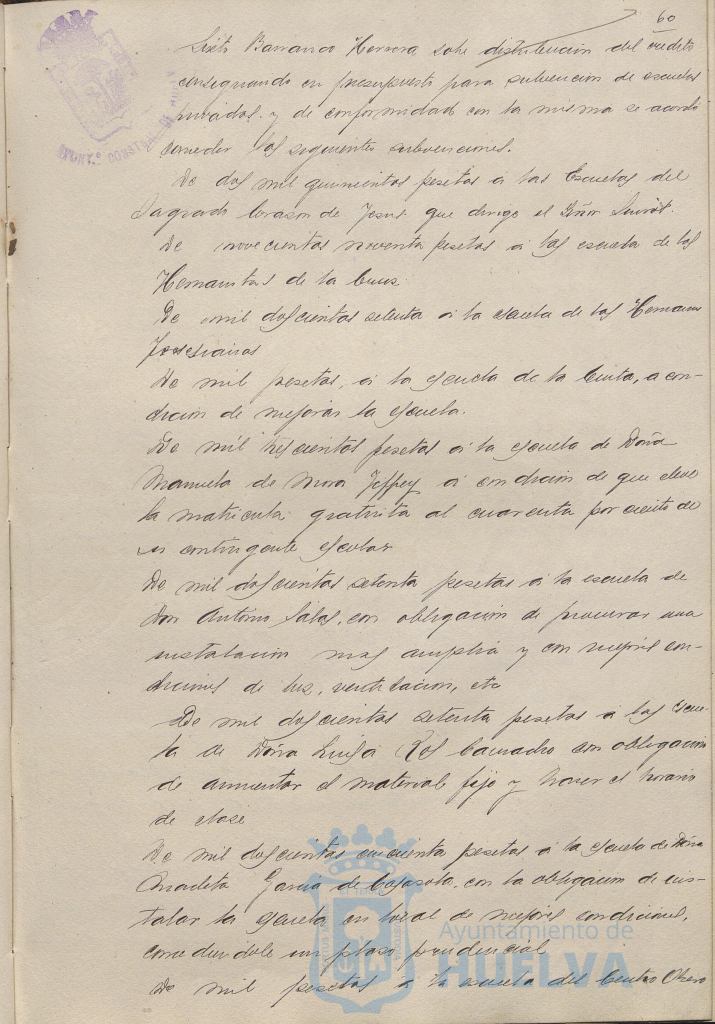 60
Sixto Barranco Herrera sobre distribucion del credito
consignando en presupuesto para subvencion de escuelas
privadas. y de conformidad con la misma se acordó
conceder las siguientes subvenciones.
De dos mil quinientas pesetas á las Escuelas del
Sagrado Corazon de Jesus que dirige el Señor
De novecientas noventa pesetas á las escuela de las
Hermanitas de la Cruz.
De mil doscientas setenta á la escuela de las Hermanas
De mil pesetas, á la escuela de la Cinta, a con-
dicion de mejorar la escuela.
De mil trescientas pesetas á la escuela de Doña
Manuela de Mora Jeffrey á condicion de que eleve
la matricula gratuita al cuarenta por ciento de
su contingente escolar
De mil doscientas setenta pesetas á la escuela de
Don Antonio Salas, con obligacion de procurar una
instalacion mas amplia y con mejores con-
diciones de luz, ventilacion, etc
De mil doscientas setenta pesetas á las escue-
la de Doña Luisa Camacho con obligacion
de aumentar el material fijo y hacer el horario
de clase
De mil doscientas cincuenta pesetas á la escuela de Doña
Garcia de con la obligacion de ins-
talar la escuela en local de mejores condiciones,
concediendole un plazo prudencial
De mil pesetas á la escuela del Centro Obrero
Ayuntamiento de
HUELVA